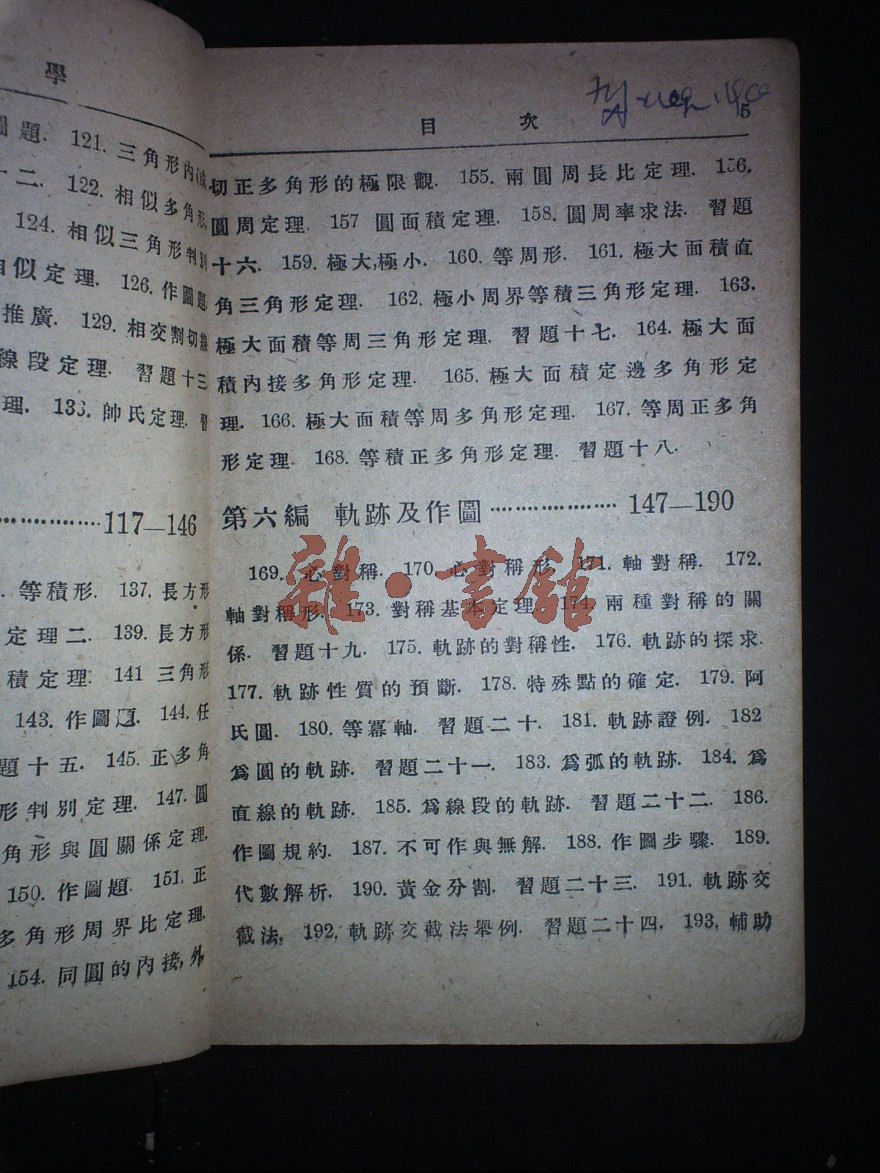 學
圖題. 121. 三角形內
十二. 122. 相似多角形
124. 相似三角形判別
相似定理. 126. 作圖題.
推廣. 129. 相交割切線
線段定理. 習題十三
理. 133. 帥氏定理. 習
117—146
等積形. 137. 長方形
定理二. 139. 長方形
積定理. 141 三角形
143. 作圖題. 144. 任
題十五. 145. 正多角
形判別定理. 147. 圓
角形與圓關係定理.
150. 作圖題. 151. 正
多角形周界比定理.
154. 同圓的內接,外
目 次 5
切正多角形的極限觀. 155. 兩圓周長比定理. 156.
圓周定理. 157 圓面積定理. 158. 圓周率求法. 習題
十六. 159. 極大,極小. 160. 等周形. 161. 極大面積直
角三角形定理. 162. 極小周界等積三角形定理. 163.
極大面積等周三角形定理. 習題十七. 164. 極大面
積內接多角形定理. 165. 極大面積定邊多角形定
理. 166. 極大面積等周多角形定理. 167. 等周正多角
形定理. 168. 等積正多角形定理. 習題十八.
第六編 軌跡及作圖 ·················· 147—190
169. 心對稱. 170. 心對稱形. 171. 軸對稱. 172.
軸對稱形. 173. 對稱基本定理. 174. 兩種對稱的關
係. 習題十九. 175. 軌跡的對稱性. 176. 軌跡的探求.
177. 軌跡性質的預斷. 178. 特殊點的確定. 179. 阿
氏圓. 180. 等冪軸. 習題二十. 181. 軌跡證例. 182
爲圓的軌跡. 習題二十一. 183. 爲弧的軌跡. 184. 爲
直線的軌跡. 185. 爲線段的軌跡. 習題二十二. 186.
作圖規約. 187. 不可作與無解. 188. 作圖步驟. 189.
代數解析. 190. 黃金分割. 習題二十三. 191. 軌跡交
截法. 192. 軌跡交截法舉例. 習題二十四. 193. 輔助
雜·書館